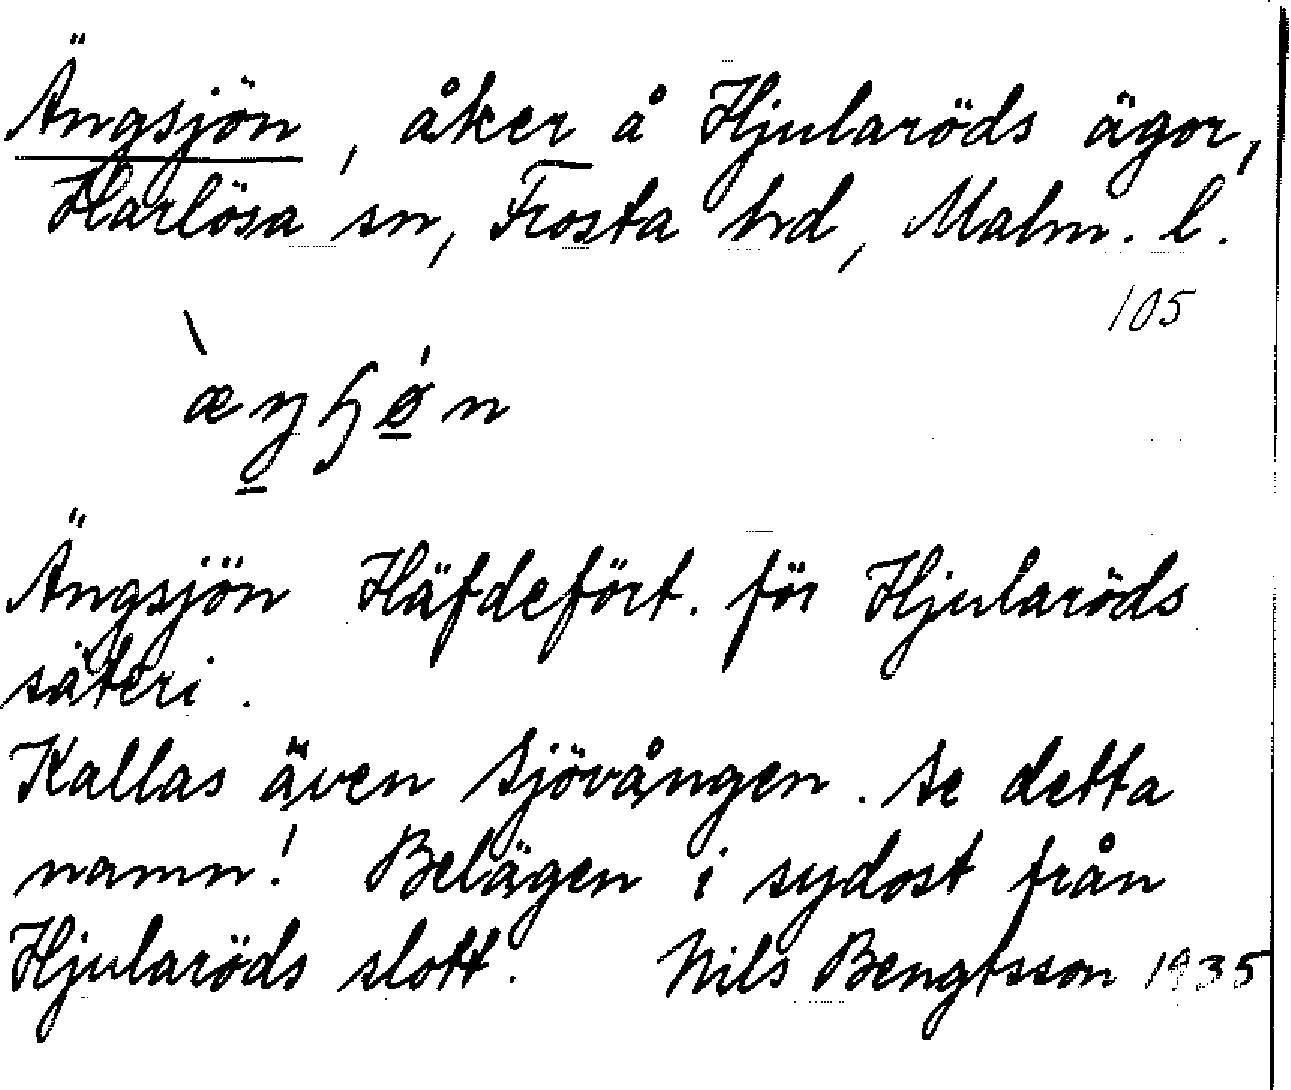 Ängsjön, åker å Hjularöds ägor,
Harlösa sn, Frosta hd, Malm. l.
105
Ängsjön Häfdefört. för Hjularöds
säteri.
Kallas även Sjövången. Se detta
namn! Belägen i sydost från
Hjularöds slott. Nils Bengtsson 1935